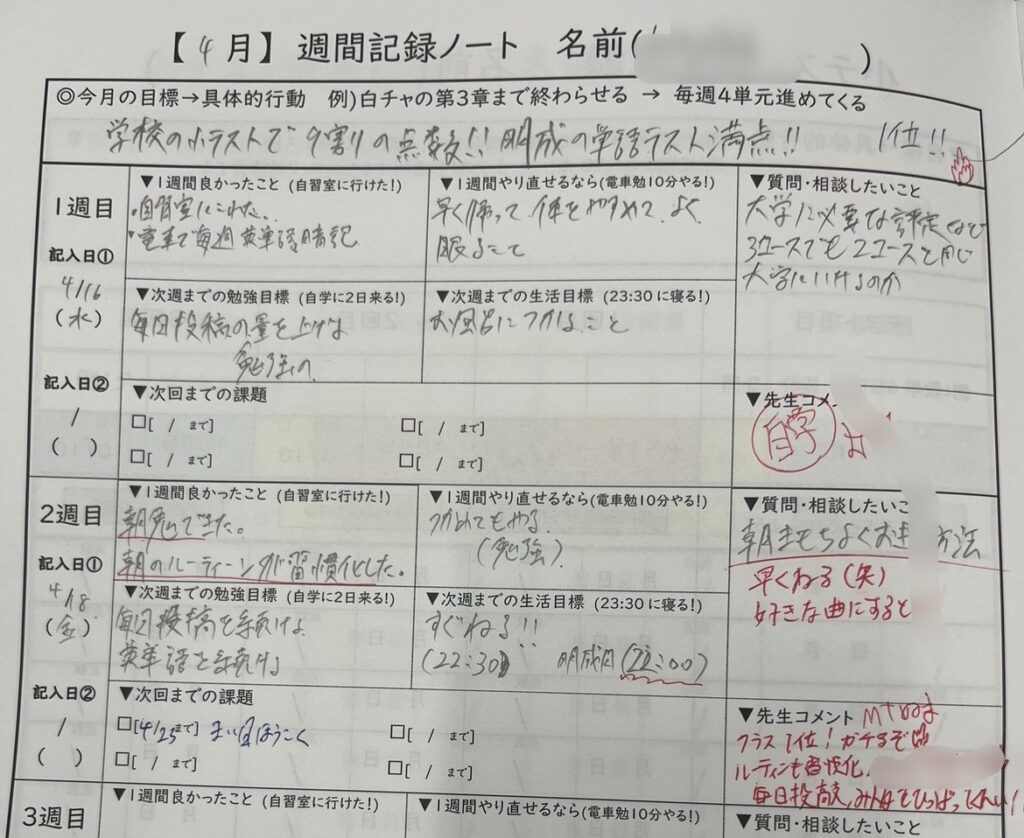 【4月】週間記録ノート 名前( )
◎今月の目標→具体的行動 例)白チャの第3章まで終わらせる → 毎週4単元進めてくる
学校の小テストで9割りの点数!! 明成の単語テスト満点!! 1位!!
1週目
記入日①
4/16
(水)
記入日②
/
( )
▼1週間良かったこと (自習室に行けた!)
・自習室にこれた。
・電車で毎週英単語暗記
▼1週間やり直せるなら(電車勉10分やる!)
早く帰って体をやすめてよく
眠ること
▼質問・相談したいこと
大学に必要な評定など
3コースでも2コースと同じ
大学にいけるのか
▼次週までの勉強目標 (自学に2日来る!)
毎日投稿の量を上げる
勉強の
▼次週までの生活目標 (23:30に寝る!)
お風呂につかること
▼次回までの課題
□[ / まで]
□[ / まで]
□[ / まで]
□[ / まで]
▼先生コメ
自学
2週目
記入日①
4/18
(金)
記入日②
/
( )
▼1週間良かったこと (自習室に行けた!)
朝勉できた。
朝のルーティーンが習慣化した。
▼1週間やり直せるなら(電車勉10分やる!)
つかれてもやる
(勉強)
▼質問・相談したいこ
朝きもちよくおき 方法
早くねる(笑)
好きな曲にすると
▼次週までの勉強目標 (自学に2日来る!)
毎日投稿を続けよ
英単語を続ける
▼次週までの生活目標 (23:30に寝る!)
すぐねる!!
(22:30) 明成日(22:00)
▼次回までの課題
□[4/25まで] まい日ほうこく
□[ / まで]
□[ / まで]
□[ / まで]
▼先生コメント
クラス1位! ガチるぞ
ルーティンも習慣化、
毎日投稿、みんなをひっぱって
3週目
▼1週間良かったこと (自習室に行けた!)
▼1週間やり直せるなら(電車勉10分やる!)
▼質問・相談したいこと